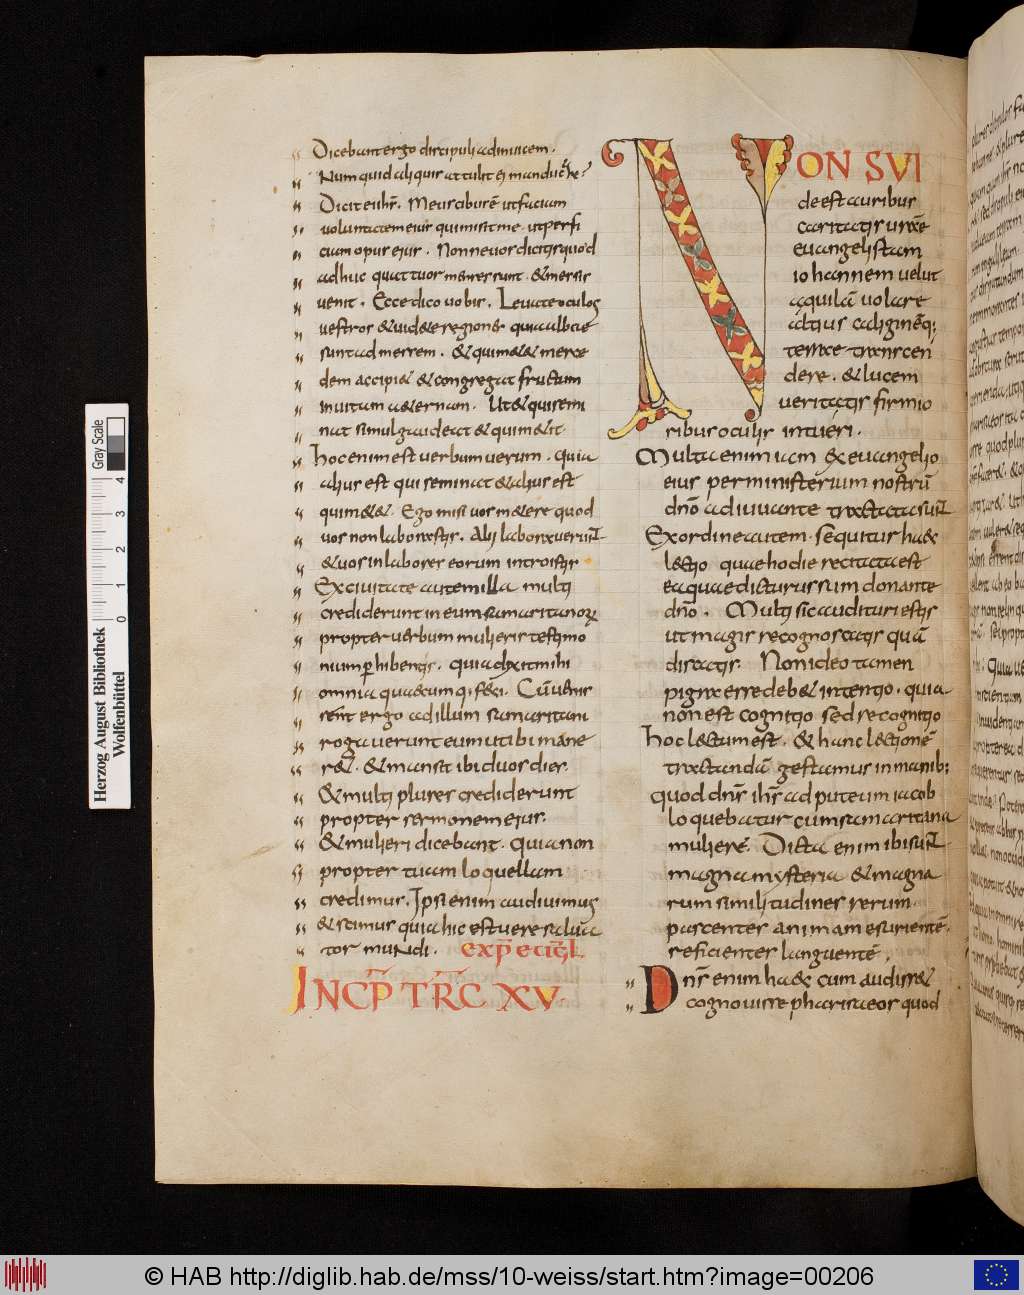 Dicebant ergo discipuli adinvicem.
Numquid aliquis attulit ei manducare?
Dicit eis ihs. Meus cibus ē ut faciam
voluntatem eius qui misit me. ut perfi
ciam opus eius. Nonne vos dicitis quod
adhuc quattuor menses sunt. & messis
venit. Ecce dico vobis. Levate oculos
vestros & videte regiones quia albae
sunt ad messem. & qui metet merce
dem accipiet & congregat fructum
in vitam aeternam. Ut & qui semi
nat simul gaudeat & qui metit.
Hoc enim est verbum verum. quia
alius est qui seminat & alius est
qui metet. Ego misi vos metere quod
vos non laborastis. Alii laboraverunt
& vos in labores eorum introistis
Ex civitate autem illa multi
crediderunt in eum samaritanorum
propter verbum mulieris testimo
nium phibentis. quia dixit mihi
omnia quaecumq; feci. Cū venis
sent ergo ad illum samaritani
rogaverunt eum ut ibi mane
ret. & mansit ibi duos dies.
& multi plures crediderunt
propter sermonem eius.
& mulieri dicebant. quia non
propter tuam loquellam
credimus. Ipsi enim audivimus
& scimus quia hic est vere salva
tor mundi. exp eugl.
INCP TRC XV.
NON SVI
de est auribus
caritatis vrae
evangelistam
iohannem velut
aquilā volare
altius caliginēq;
terrae transcen
dere. & lucem
veritatis firmio
ribus oculis intueri.
Multa enim iam ex evangelio
eius per ministerium nostrū
dnō adiuvante tractata sunt
Ex ordine autem sequitur haec
lectio quae hodie recitata est
ea quae dicturus sum donante
dnō. Multi sic audituri estis
ut magis recognoscatis quā
discatis. Non ideo tamen
pigra esse debet intentio. quia
non est cognitio sed recognitio
Hoc lectum est. & hanc lectionē
tractandā gestamus in manib;
quod dns ihs ad puteum iacob
loquebatur cum samaritana
muliere. Dicta enim ibi sunt
magna mysteria & magna
rum similitudines rerum.
pascentes animam esurientē.
reficientes languentē.
Dns enim haec cum audisset
cognovisse pharisaeos quod
Herzog August Bibliothek
Wolfenbüttel
Gray Scale
0 1 2 3 4
© HAB http://diglib.hab.de/mss/10-weiss/start.htm?image=00206